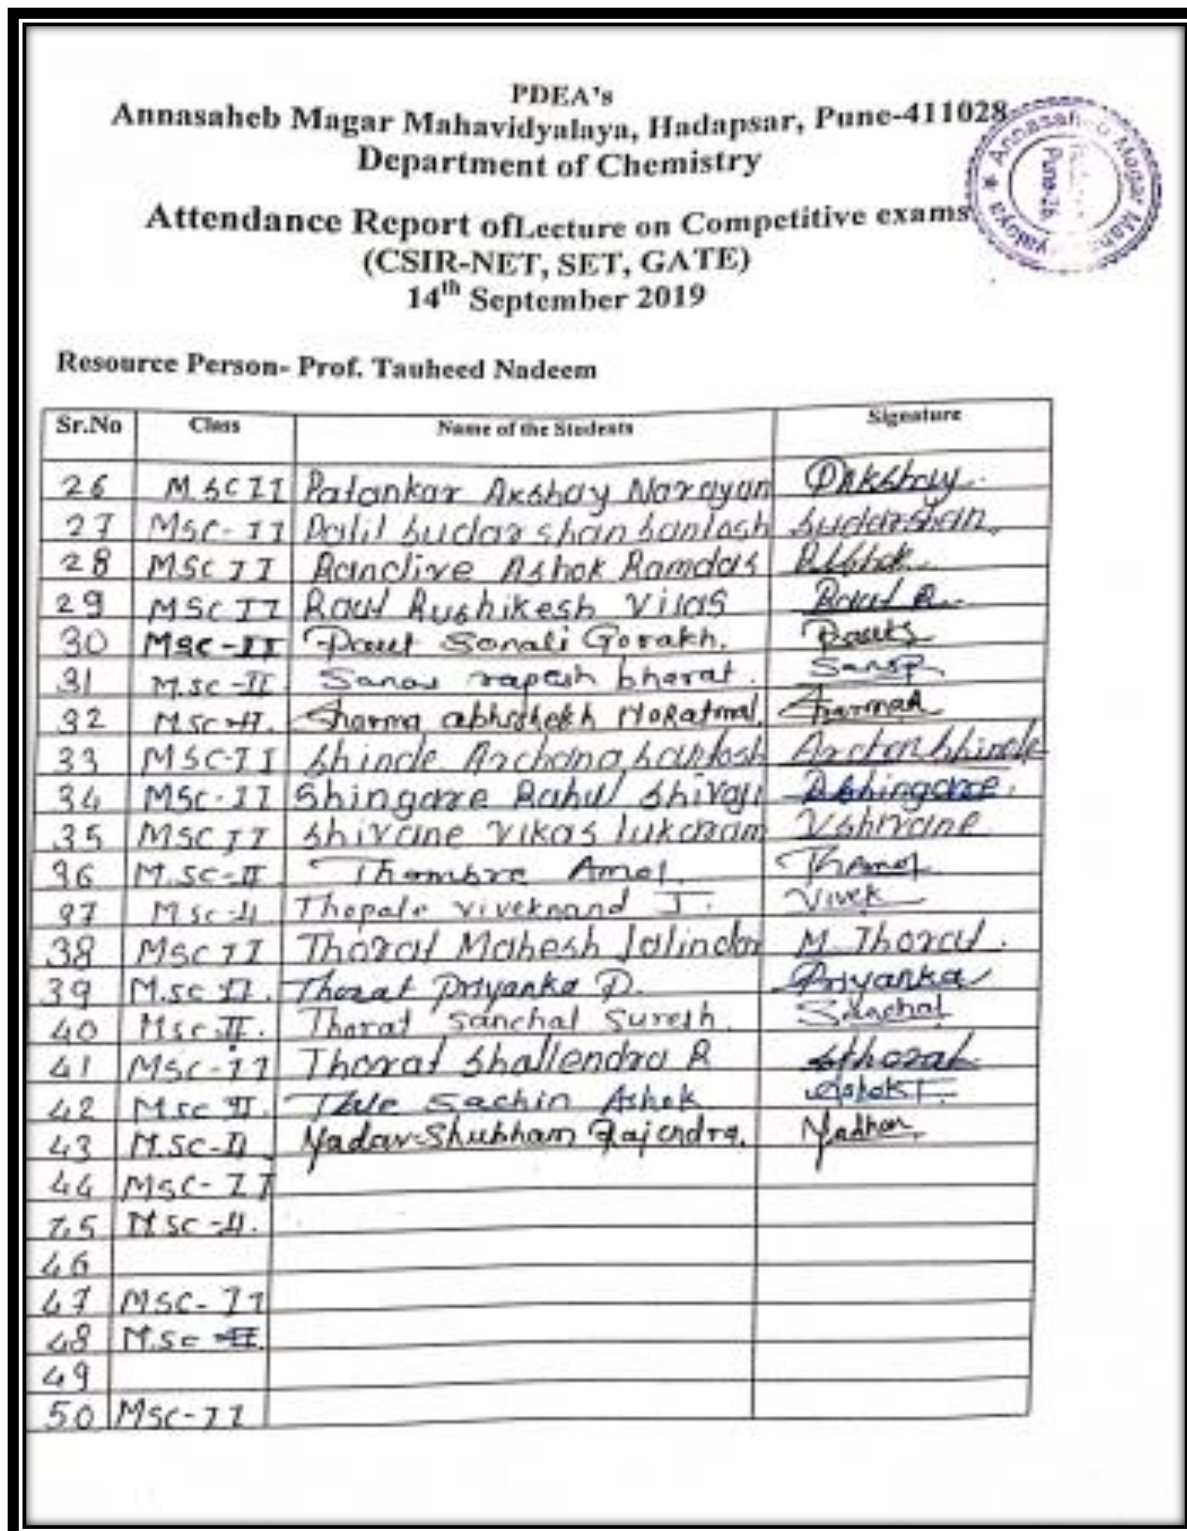 PDEA's
Annasaheb Magar Mahavidyalaya, Hadapsar, Pune-411028
Department of Chemistry
Annasaheb Magar Mahavidyalaya
Pune-28
Attendance Report ofLecture on Competitive exams
(CSIR-NET, SET, GATE)
14th September 2019
Resource Person- Prof. Tauheed Nadeem
Sr.No Class Name of the Students Signature
26 M.SC II Patankar Akshay Narayan PAkshay
27 MSC-II Patil Sudarshan Santosh Sudarshan
28 MSC II Randive Ashok Ramdas RAshok
29 MSC II Raut Rushikesh Vilas Raut R.
30 MSC-II Raut Sonali Gorakh. RautS
31 M.SC-II Sanas rapesh bharat. SansP
32 M.SC-II. Sharma abhishekh Noratmal. SharmaA
33 MSC-II Shinde Archana Santosh Archan Shinde
34 MSC-II Shingare Rahul Shivaji RShingare.
35 MSC II Shivane Vikas Tukaram VShivane
36 M.SC-II Thombre Amol. ThAmol
37 M.SC-II Thopate viveknand J. Vivek
38 MSC II Thorat Mahesh Jalindar M. Thorat.
39 M.SC II. Thorat Priyanka D. Priyanka
40 M.SC II. Thorat Sanchal Suresh. Sanchal
41 MSC-II Thorat Shallendra R SThorat
42 M.SC II. Sachin Ashok
43 M.SC-II Yadav Shubham Rajendra. Yadhav
44 MSC-II
45 M.SC-II.
46
47 MSC-II
48 M.SC-II.
49
50 MSC-II